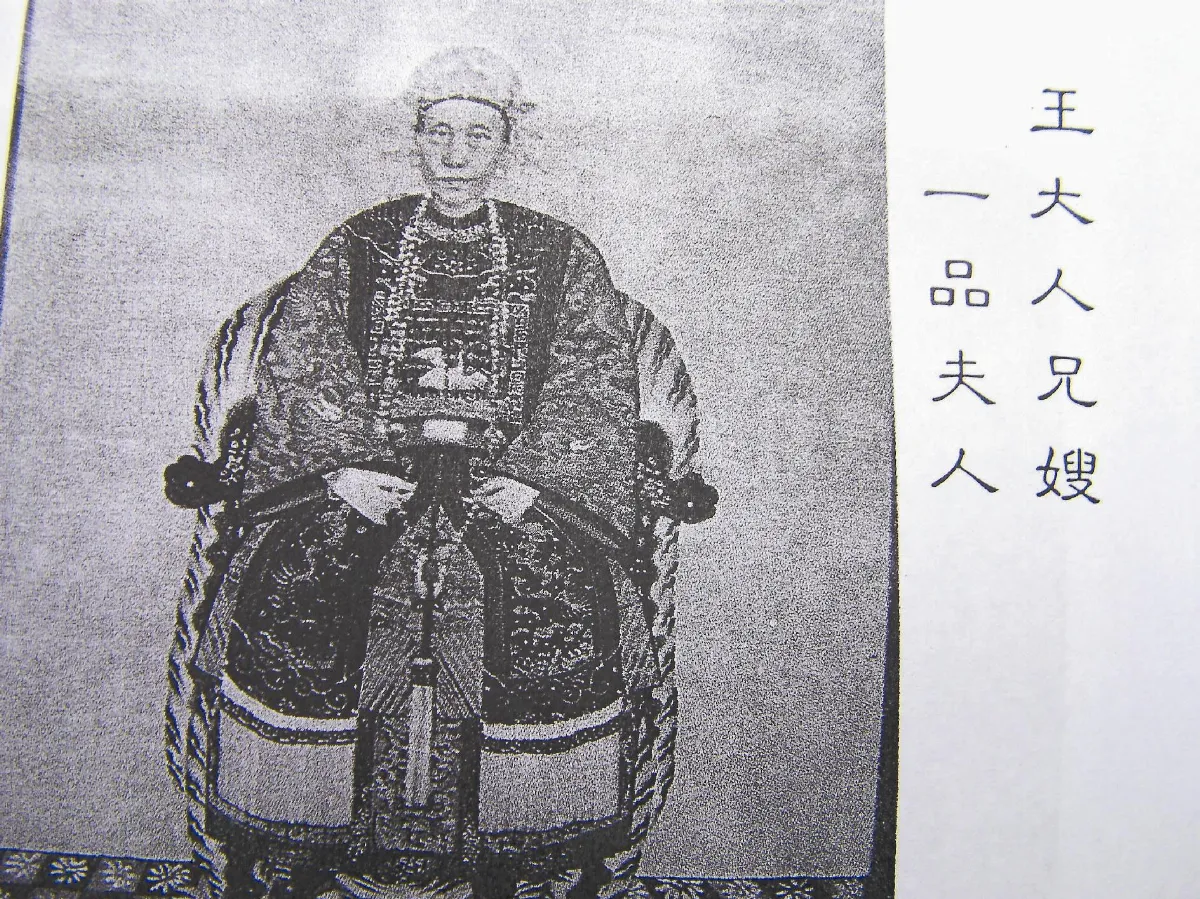 王大人兄嫂
一品夫人